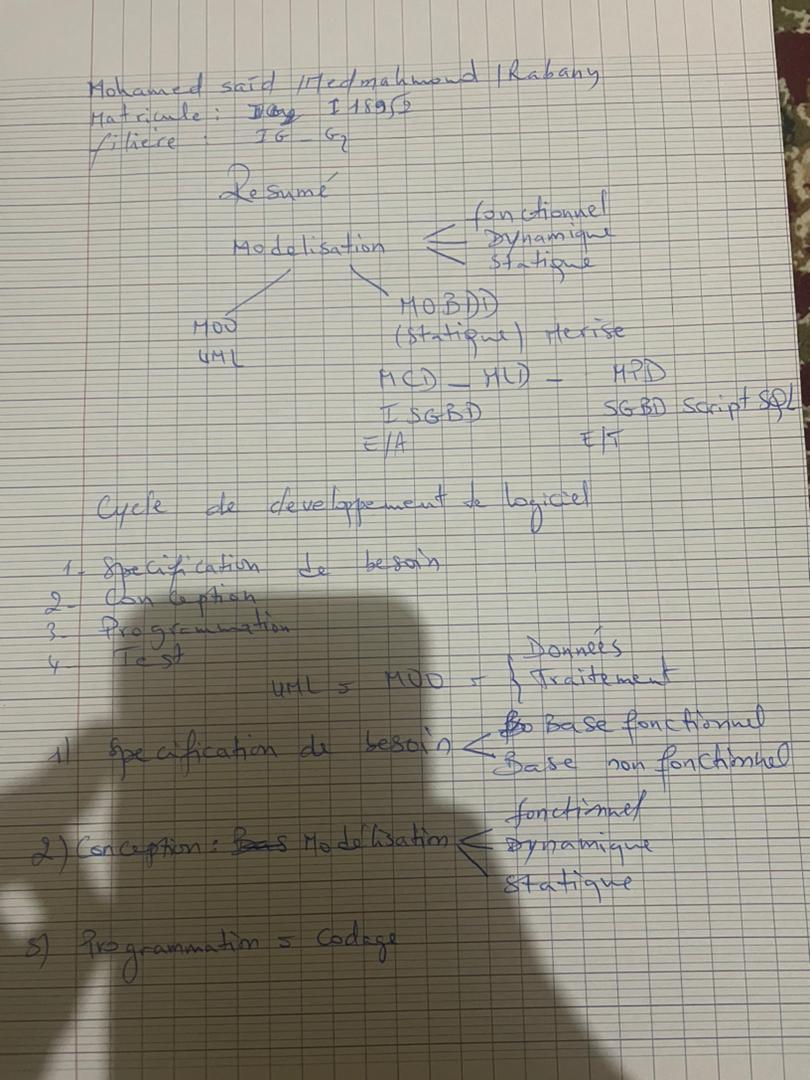 Mohamed said /Medmahmoud /Rabany
Matricule : I 18952
filiere : IG - G2
Resumé
Modélisation
fonctionnel
Dynamique
Statique
MOO
UML
MOBDD
(Statique) Merise
MCD - MLD - MPD
I SGBD SGBD Script SQL
E/A E/T
Cycle de developpement de logiciel
1- Specification de besoin
2- Conception
3- Programmation
4- Test
UML = MOO = { Données
Traitement
1) Specification de besoin
Base fonctionnel
Base non fonctionnel
2) Conception : Modélisation
fonctionnel
Dynamique
Statique
3) Programmation = Codage